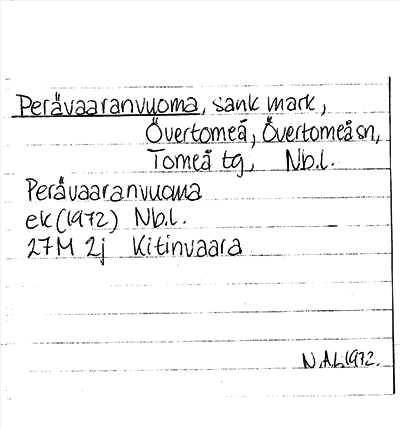 Perävaaranvuoma, sank mark,
Övertorneå, Övertorneå sn,
Torneå tg, Nb.l.
Perävaaranvuoma
ek (1972) Nb.l.
27M 2j Kitinvaara
N.A.L. 1972.